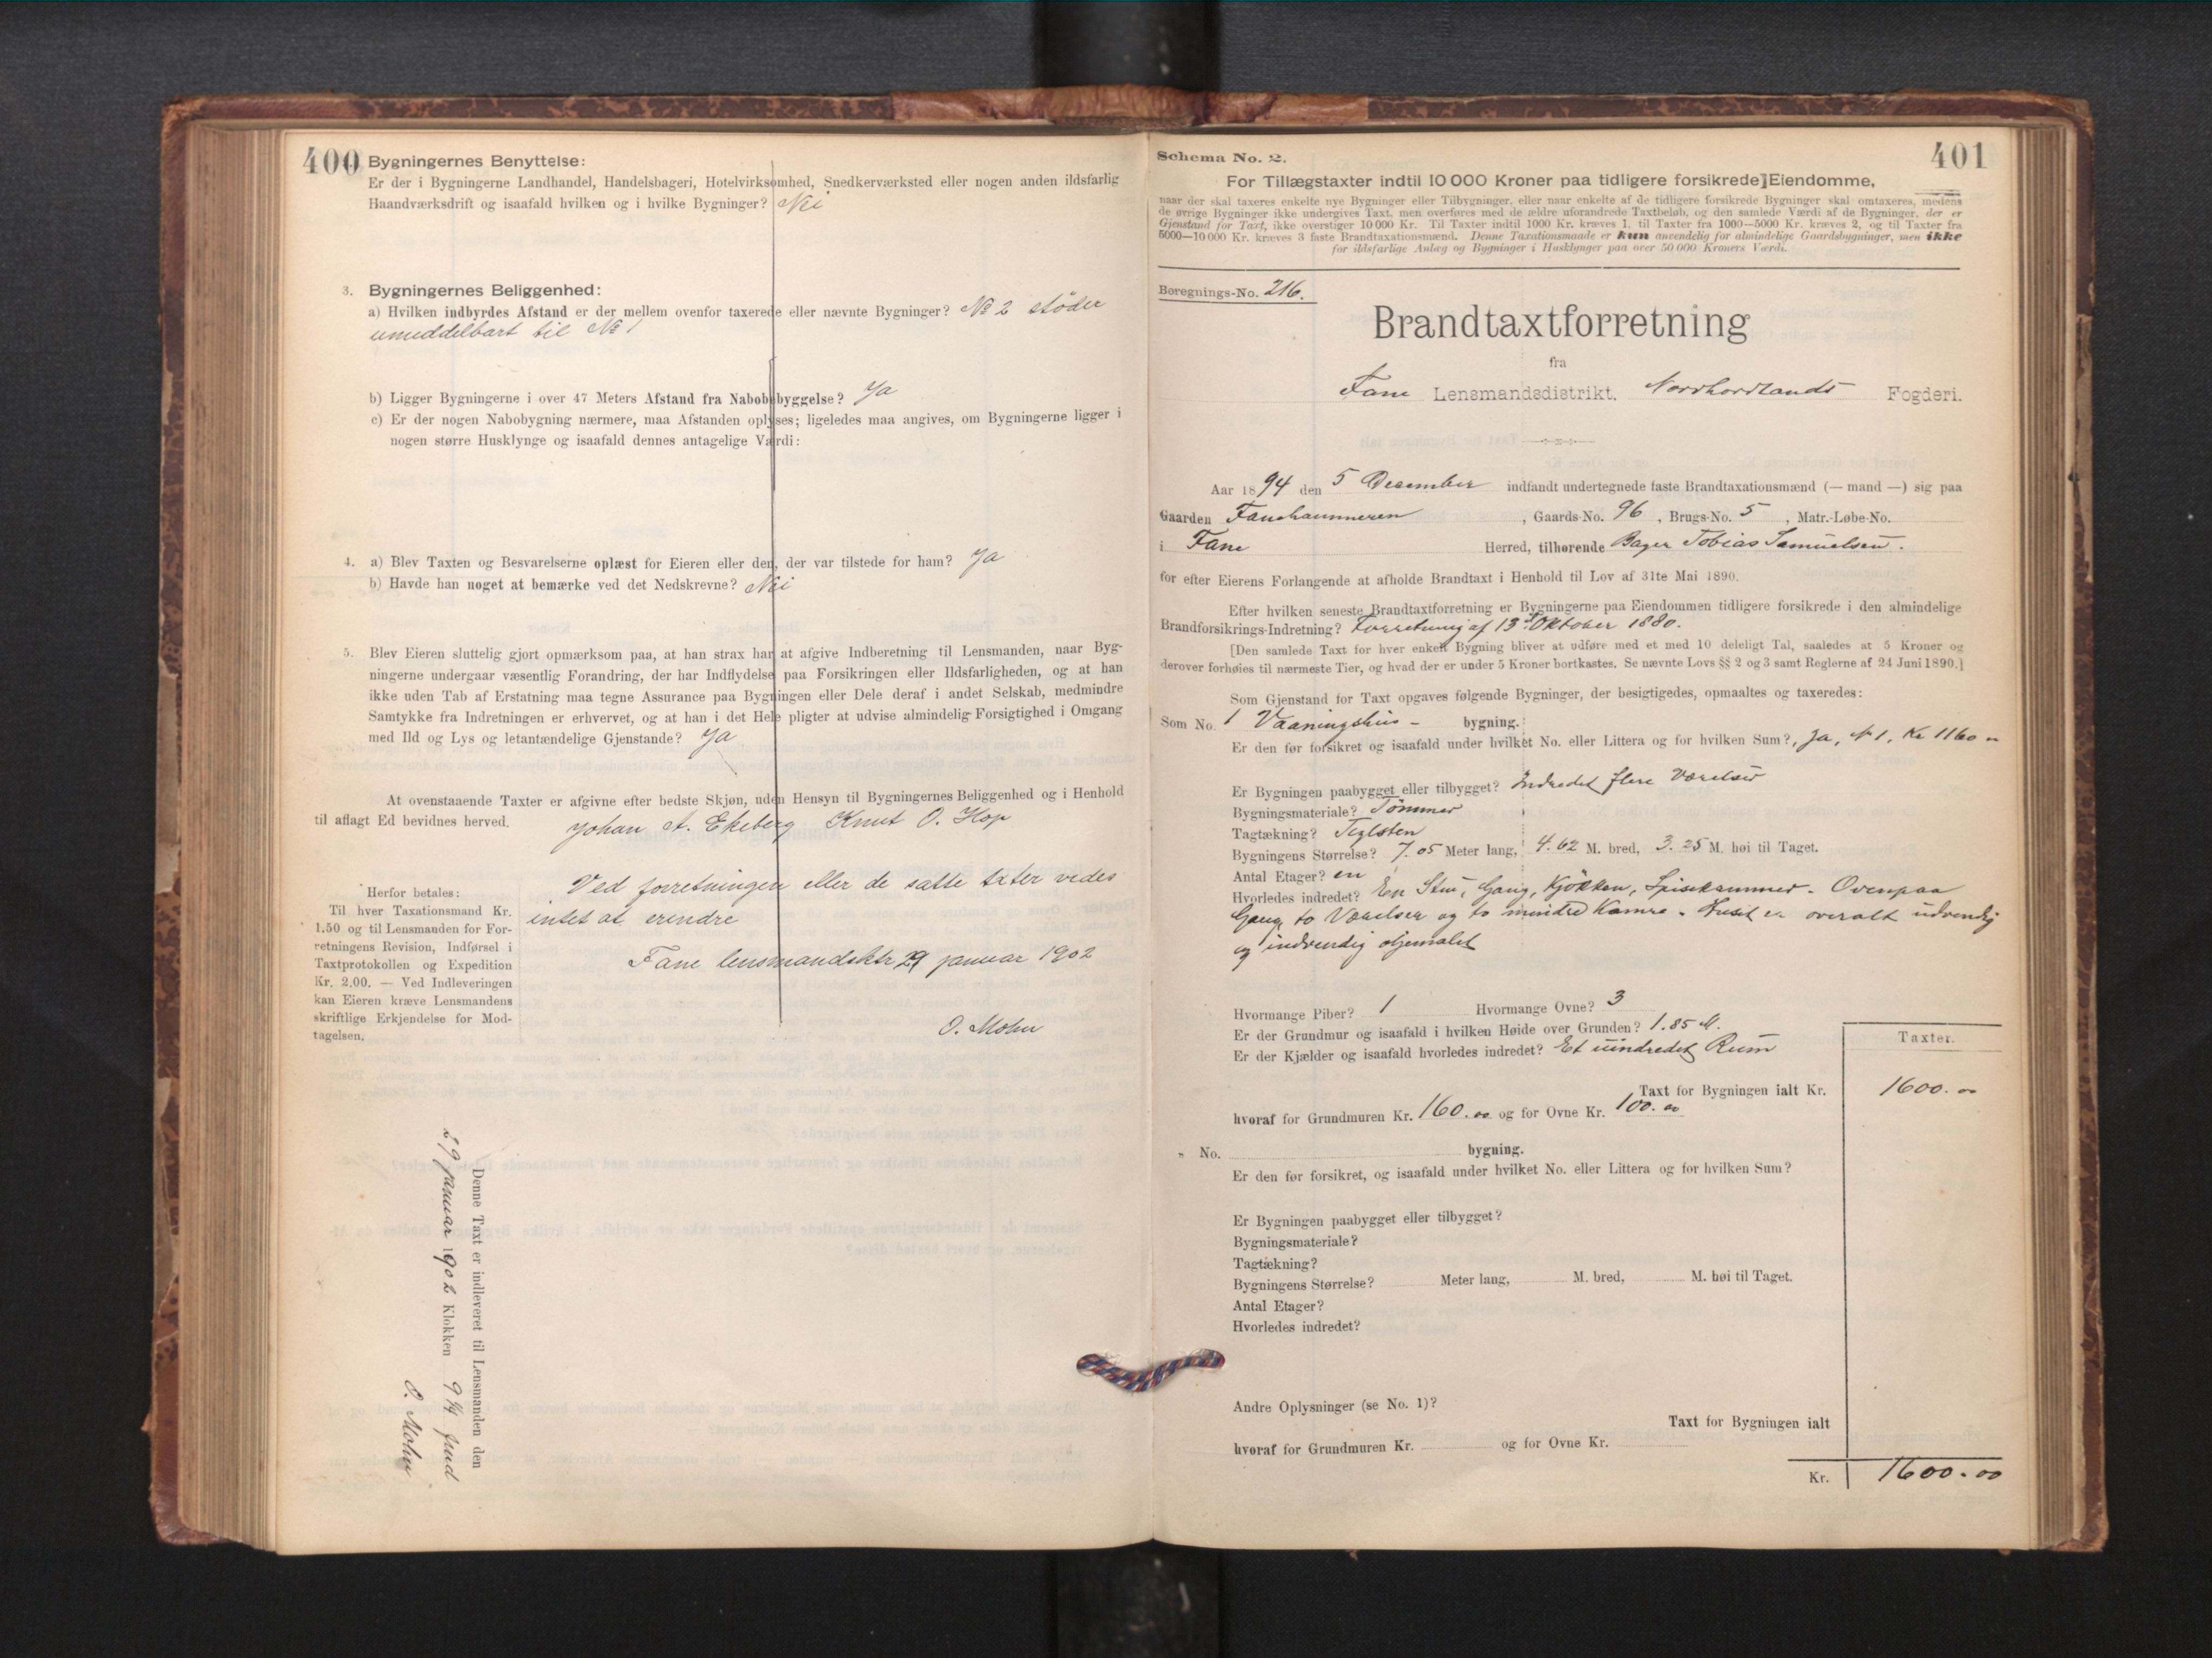 400
Bygningernes Benyttelse:
Er der i Bygningerne Landhandel, Handelsbageri, Hotelvirksomhed, Snedkerværksted eller nogen anden ildsfarlig
Haandværksdrift og isaafald hvilken og i hvilke Bygninger? Nei
3. Bygningernes Beliggenhed:
a) Hvilken indbyrdes Afstand er der mellem ovenfor taxerede eller nævnte Bygninger? No 2 stöder
umiddelbart til No 1
b) Ligger Bygningerne i over 47 Meters Afstand fra Nabobebyggelse? Ja
c) Er der nogen Nabobygning nærmere, maa Afstanden oplyses; ligeledes maa angives, om Bygningerne ligger i
nogen større Husklynge og isaafald dennes antagelige Værdi:
4. a) Blev Taxten og Besvarelserne oplæst for Eieren eller den, der var tilstede for ham? Ja
b) Havde han noget at bemærke ved det Nedskrevne? Nei
5. Blev Eieren sluttelig gjort opmærksom paa, at han strax har at afgive Indberetning til Lensmanden, naar Byg-
ningerne undergaar væsentlig Forandring, der har Indflydelse paa Forsikringen eller Ildsfarligheden, og at han
ikke uden Tab af Erstatning maa tegne Assurance paa Bygningen eller Dele deraf i andet Selskab, medmindre
Samtykke fra Indretningen er erhvervet, og at han i det Hele pligter at udvise almindelig Forsigtighed i Omgang
med Ild og Lys og letantændelige Gjenstande? Ja
At ovenstaaende Taxter er afgivne efter bedste Skjøn, uden Hensyn til Bygningernes Beliggenhed og i Henhold
til aflagt Ed bevidnes herved.
Johan A. Ekeberg Knut O. Hop
Herfor betales:
Til hver Taxationsmand Kr.
1.50 og til Lensmanden for For-
retningens Revision, Indførsel i
Taxtprotokollen og Expedition
Kr. 2.00. — Ved Indleveringen
kan Eieren kræve Lensmandens
skriftlige Erkjendelse for Mod-
tagelsen.
Ved forretningen eller de satte taxter vides
intet at erindre
Fane lensmandsktr 29 januar 1902
O. Mohn
Denne Taxt er indleveret til Lensmanden den
29 januar 1902 Klokken 9 1/4 fmd
O. Mohn
401
Schema No. 2.
For Tillægstaxter indtil 10 000 Kroner paa tidligere forsikrede Eiendomme,
naar der skal taxeres enkelte nye Bygninger eller Tilbygninger, eller naar enkelte af de tidligere forsikrede Bygninger skal omtaxeres, medens
de øvrige Bygninger ikke undergives Taxt, men overføres med de ældre uforandrede Taxtbeløb, og den samlede Værdi af de Bygninger, der er
Gjenstand for Taxt, ikke overstiger 10 000 Kr. Til Taxter indtil 1000 Kr. kræves 1, til Taxter fra 1000—5000 Kr. kræves 2, og til Taxter fra
5000—10 000 Kr. kræves 3 faste Brandtaxationsmænd. Denne Taxationsmaade er kun anvendelig for almindelige Gaardsbygninger, men ikke
for ildsfarlige Anlæg og Bygninger i Husklynger paa over 50 000 Kroners Værdi.
Beregnings-No. 216.
Brandtaxtforretning
fra
Fane Lensmandsdistrikt, Nordhordlands Fogderi.
Aar 1894 den 5 December indfandt undertegnede faste Brandtaxationsmænd (— mand —) sig paa
Gaarden Fanehammeren, Gaards-No. 96, Brugs-No. 5, Matr.-Løbe-No.
i Fane Herred, tilhørende Bager Tobias Samuelsen.
for efter Eierens Forlangende at afholde Brandtaxt i Henhold til Lov af 31te Mai 1890.
Efter hvilken seneste Brandtaxtforretning er Bygningerne paa Eiendommen tidligere forsikrede i den almindelige
Brandforsikrings-Indretning? Forretning af 13d Oktober 1880.
[Den samlede Taxt for hver enkelt Bygning bliver at udføre med et med 10 deleligt Tal, saaledes at 5 Kroner og
derover forhøies til nærmeste Tier, og hvad der er under 5 Kroner bortkastes. Se nævnte Lovs §§ 2 og 3 samt Reglerne af 24 Juni 1890.]
Som Gjenstand for Taxt opgaves følgende Bygninger, der besigtigedes, opmaaltes og taxeredes:
Som No. 1 Vaaningshus - bygning.
Er den før forsikret og isaafald under hvilket No. eller Littera og for hvilken Sum?, Ja, No 1, Kr 1160 "
Er Bygningen paabygget eller tilbygget? Indredet flere Værelser
Bygningsmateriale? Tømmer
Tagtækning? Teglsten
Bygningens Størrelse? 7.05 Meter lang, 4.62 M. bred, 3.25 M. høi til Taget.
Antal Etager? en
Hvorledes indredet? En Stue, Gang, Kjøkken, Spisekammer. Ovenpaa
Gang, to Værelser og to mindre Kamre. Huset er overalt udvendig
og indvendig oljemalet
Hvormange Piber? 1 Hvormange Ovne? 3
Er der Grundmur og isaafald i hvilken Høide over Grunden? 1.85 M.
Er der Kjælder og isaafald hvorledes indredet? Et uindredet Rum
Taxter.
Taxt for Bygningen ialt Kr. 1600.00
hvoraf for Grundmuren Kr. 160.00 og for Ovne Kr. 100.00
" No. bygning.
Er den før forsikret, og isaafald under hvilket No. eller Littera og for hvilken Sum?
Er Bygningen paabygget eller tilbygget?
Bygningsmateriale?
Tagtækning?
Bygningens Størrelse? Meter lang, M. bred, M. høi til Taget.
Antal Etager?
Hvorledes indredet?
Andre Oplysninger (se No. 1)?
Taxt for Bygningen ialt
hvoraf for Grundmuren Kr. og for Ovne Kr.
Kr. 1600.00